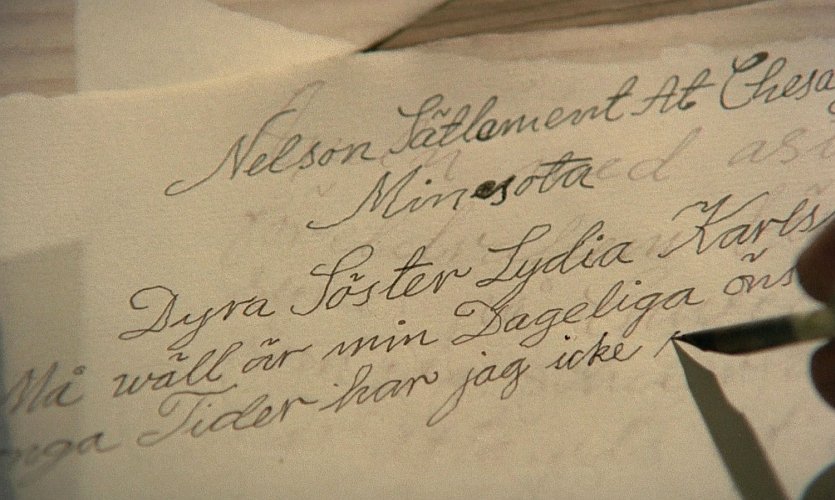 Nelson Sätlament At Chesa
Minesota
Dyra Söster Lydia Karls
Må wäll är min Dageliga öns
nga Tider har jag icke